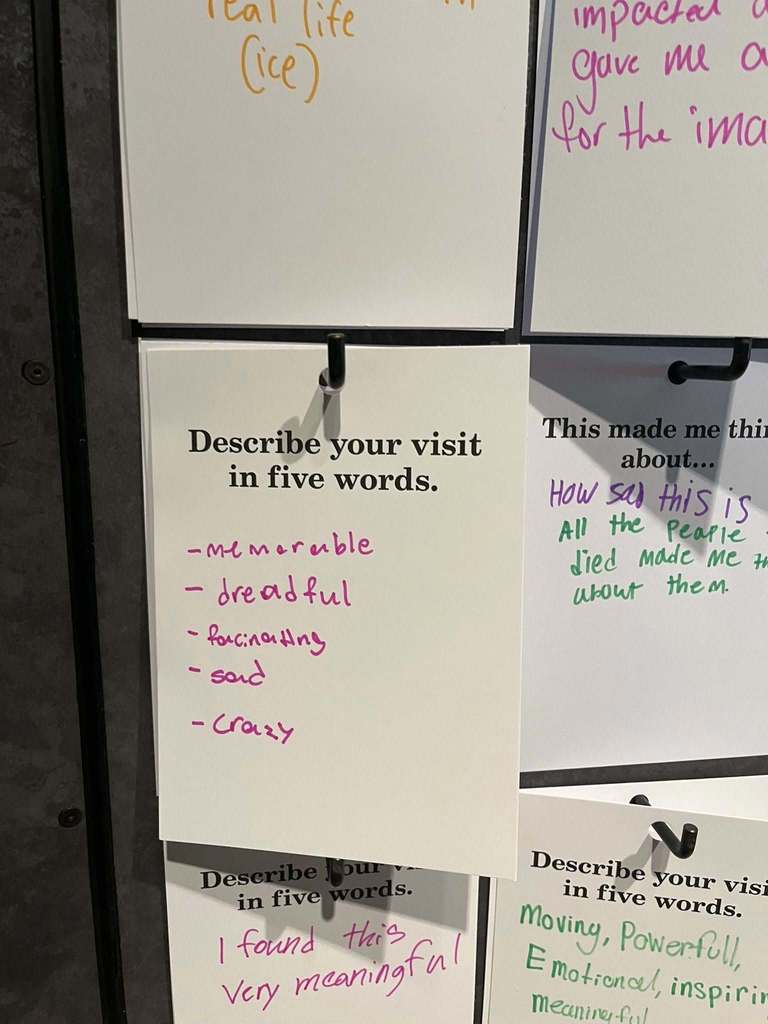 real life
(ice)
impacted
gave me
for the
Describe your visit
in five words.
- memorable
- dreadful
- facinating
- sad
- crazy
This made me
about...
How sad this is
All the people
died made me
about them.
Describe
in five words.
I found this
very meaningful
Describe your
in five words.
Moving, Powerfull,
Emotional,
meaningful